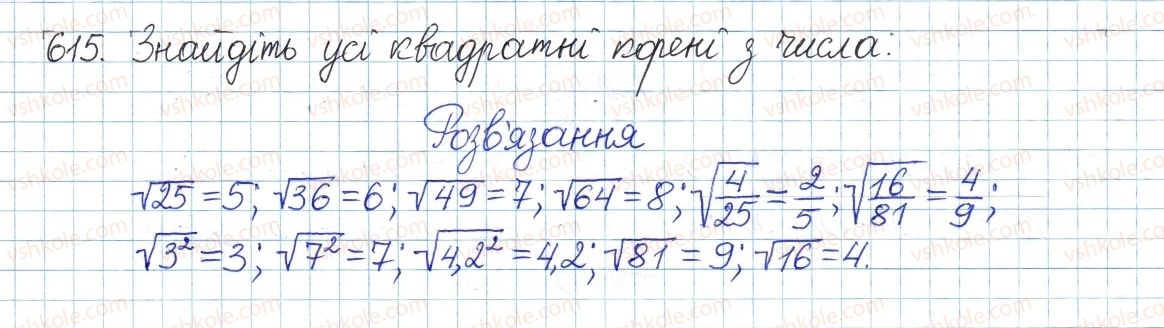 615. Знайдіть усі квадратні корені з числа:
Розв'язання
√25 = 5; √36 = 6; √49 = 7; √64 = 8; √4/25 = 2/5; √16/81 = 4/9;
√3² = 3; √7² = 7; √4,2² = 4,2; √81 = 9; √16 = 4.